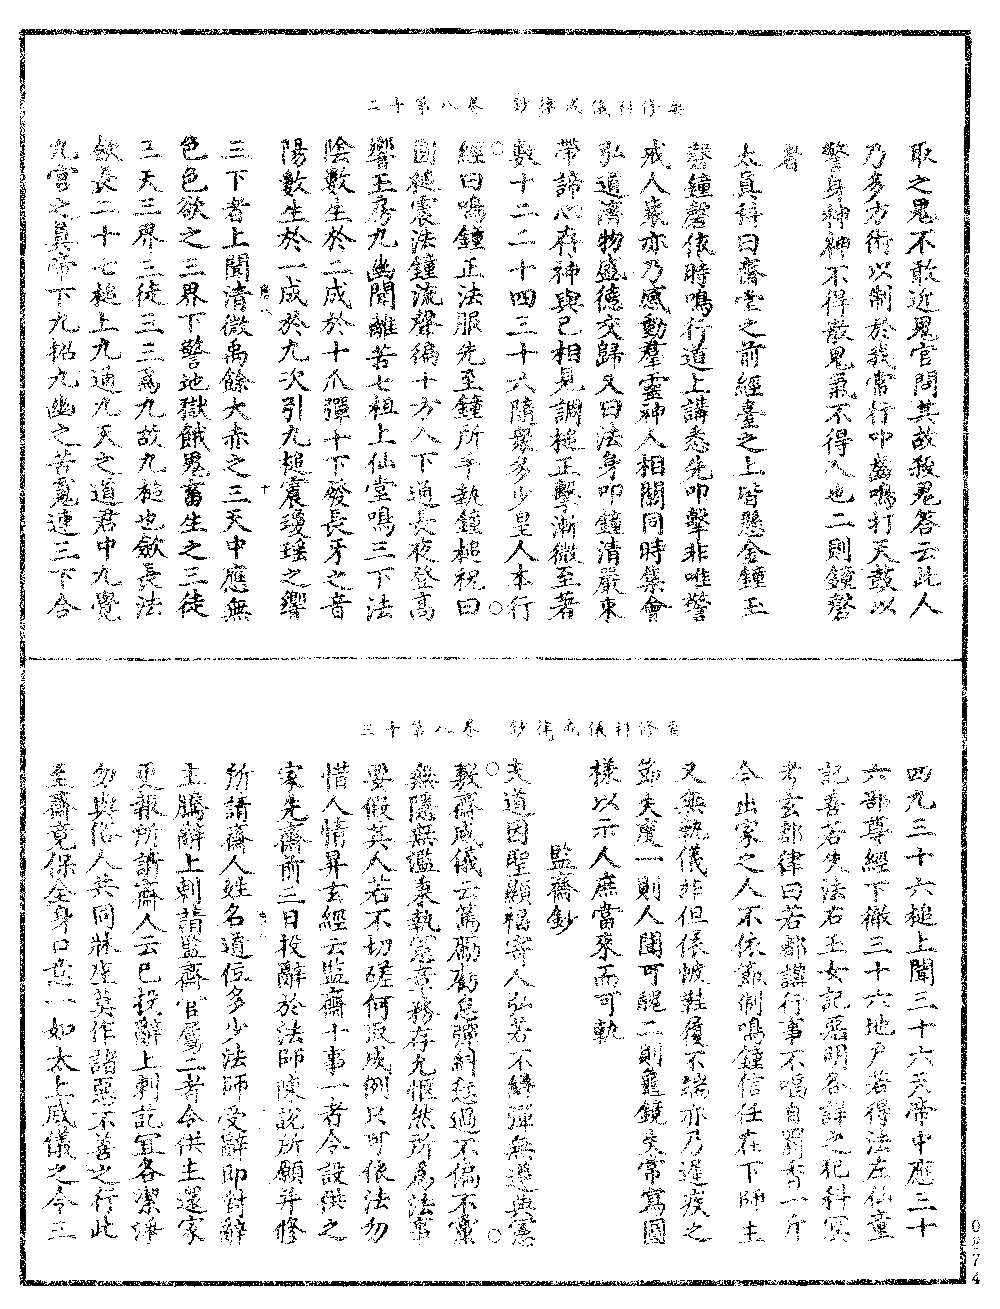 二十第八卷　鈔律戒儀科修齋
取之鬼不敢近鬼官問其故殺鬼答云此人
乃多方術以制於我常行叩齒鳴打天鼓以
警身神神不得散鬼氣不得入也二則鐘磬
者
太真科曰齋堂之前經臺之上皆懸金鐘玉
磬鐘磬依時鳴行道上講悉先叩擊非唯警
戒人衆亦乃感動羣靈神人相關同時集會
弘道濟物盛德交歸又曰法身叩鐘清嚴束
帶諦心存神與已相見調槌正擊漸微至著
數十二二十四三十六隨衆多少星人本行
經曰鳴鐘正法服先至鐘所手執鐘槌祝曰
圓槌震法鐘流聲徧十方入下通長夜登高
響玉房九幽聞離苦七祖上仙堂鳴三下法
陰數生於二成於十爪彈十下發長牙之音
陽數生於一成於九次引九槌震瓊瑤之響
三下者上聞清微禹餘大赤之三天中應無
色色欲之三界下警地獄餓鬼畜生之三徒
三天三界三徒三三爲九故九槌也斂長法
斂長二十七槌上九通九天之道君中九覺
九宮之真帝下九拯九幽之苦魂連三下合
三十第八卷　鈔律戒儀科修齋
四九三十六槌上聞三十六天帝中應三十
六部尊經下徹三十六地戶若得法左仙童
記善若失法右玉女記惡明各詳之犯科冥
考玄都律曰若都講行事不唱自罰香一斤
今出家之人不依節制鳴鐘信任在下師主
又無執儀非但俵帔鞋履不端亦乃遲疾之
節失度一則人聞可醜二則龜鏡失常寫圖
樣以示人庶當來而可軌
監齋鈔
夫道因聖顯福寄人弘若不繩彈無遵典憲
敎齋威儀云篤勵虧怠彈糾愆過不偏不黨
無隱無濫秉執憲章務存允愜然所爲法事
要假其人若不切磋何返成例只可依法勿
惜人情昇玄經云監齋十事一者令設供之
家先齋前三日投辭於法師陳說所願并修
所請齋人姓名道位多少法師受辭即對辭
主騰辭上刺請監齋官屬二者令供主還家
更報所請齋人云已投辭上刺訖宜各潔淨
勿與俗人共同牀座莫作諸惡不善之行此
至齋竟保全身口意一如太上威儀之令三
0874